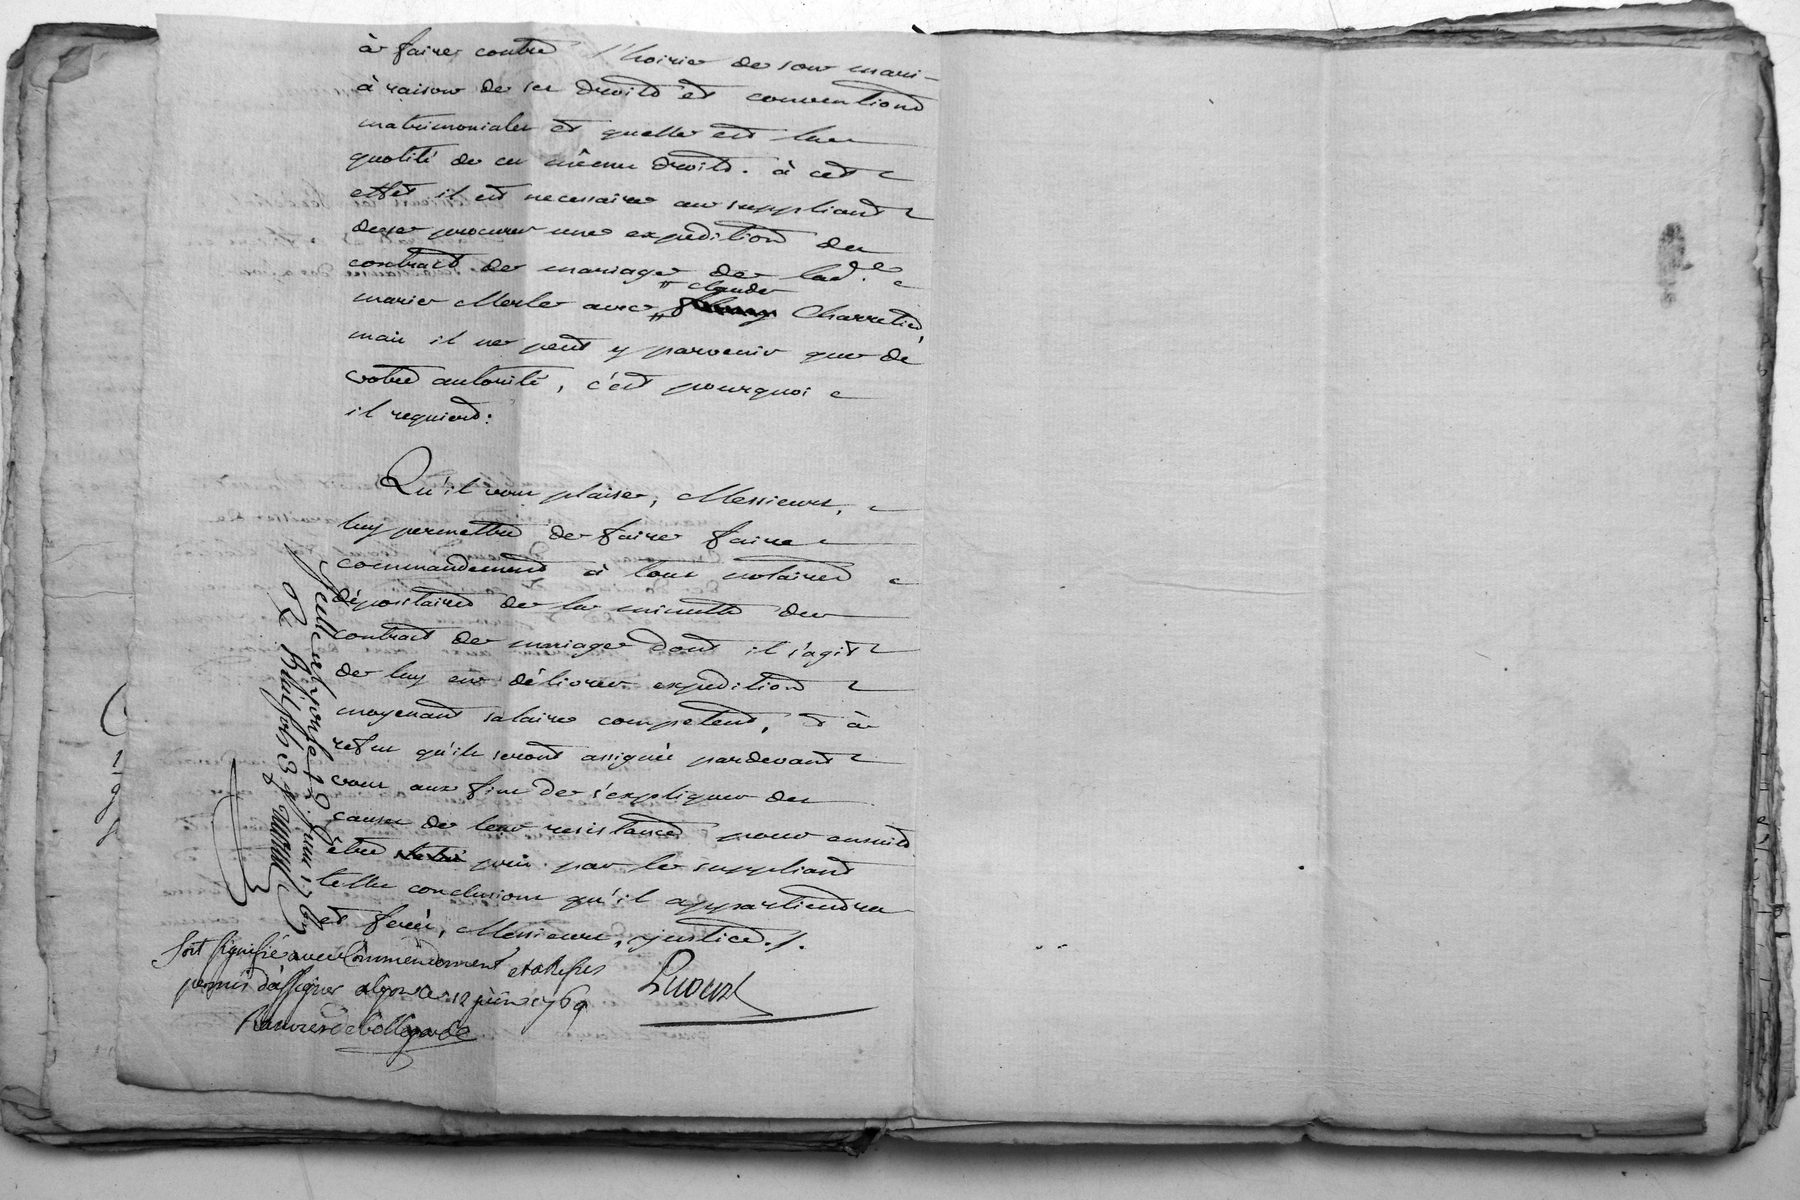 à faire contre l'hoirie de son mari
à raison de ses droits et conventions
matrimoniales et quelle est la
quotité de ces mêmes droits. à cet
effet il est necessaire au suppliant
de se procurer une expedition du
contract de mariage de lad.e
marie Merle avec claude Charretier,
mais il ne peut y parvenir que de
votre autorité, c'est pourquoi
il requiert:
Qu'il vous plaise, Messieurs,
luy permettre de faire faire
commandement à tous notaires
dépositaires de la minutte du
contract de mariage dont il s'agit
de luy en délivrer expedition
moyenant salaire competent, & à
refus qu'ils seront assignés pardevant
vous aux fins de s'expliquer des
causes de leur resistance pour ensuite
être pris par le suppliant
telles conclusions qu'il appartiendra
et ferés, Messieurs, justice./.
soit signifié avec Commendement et au refus
permis d'assigner a lyon ce 12 juin 1769